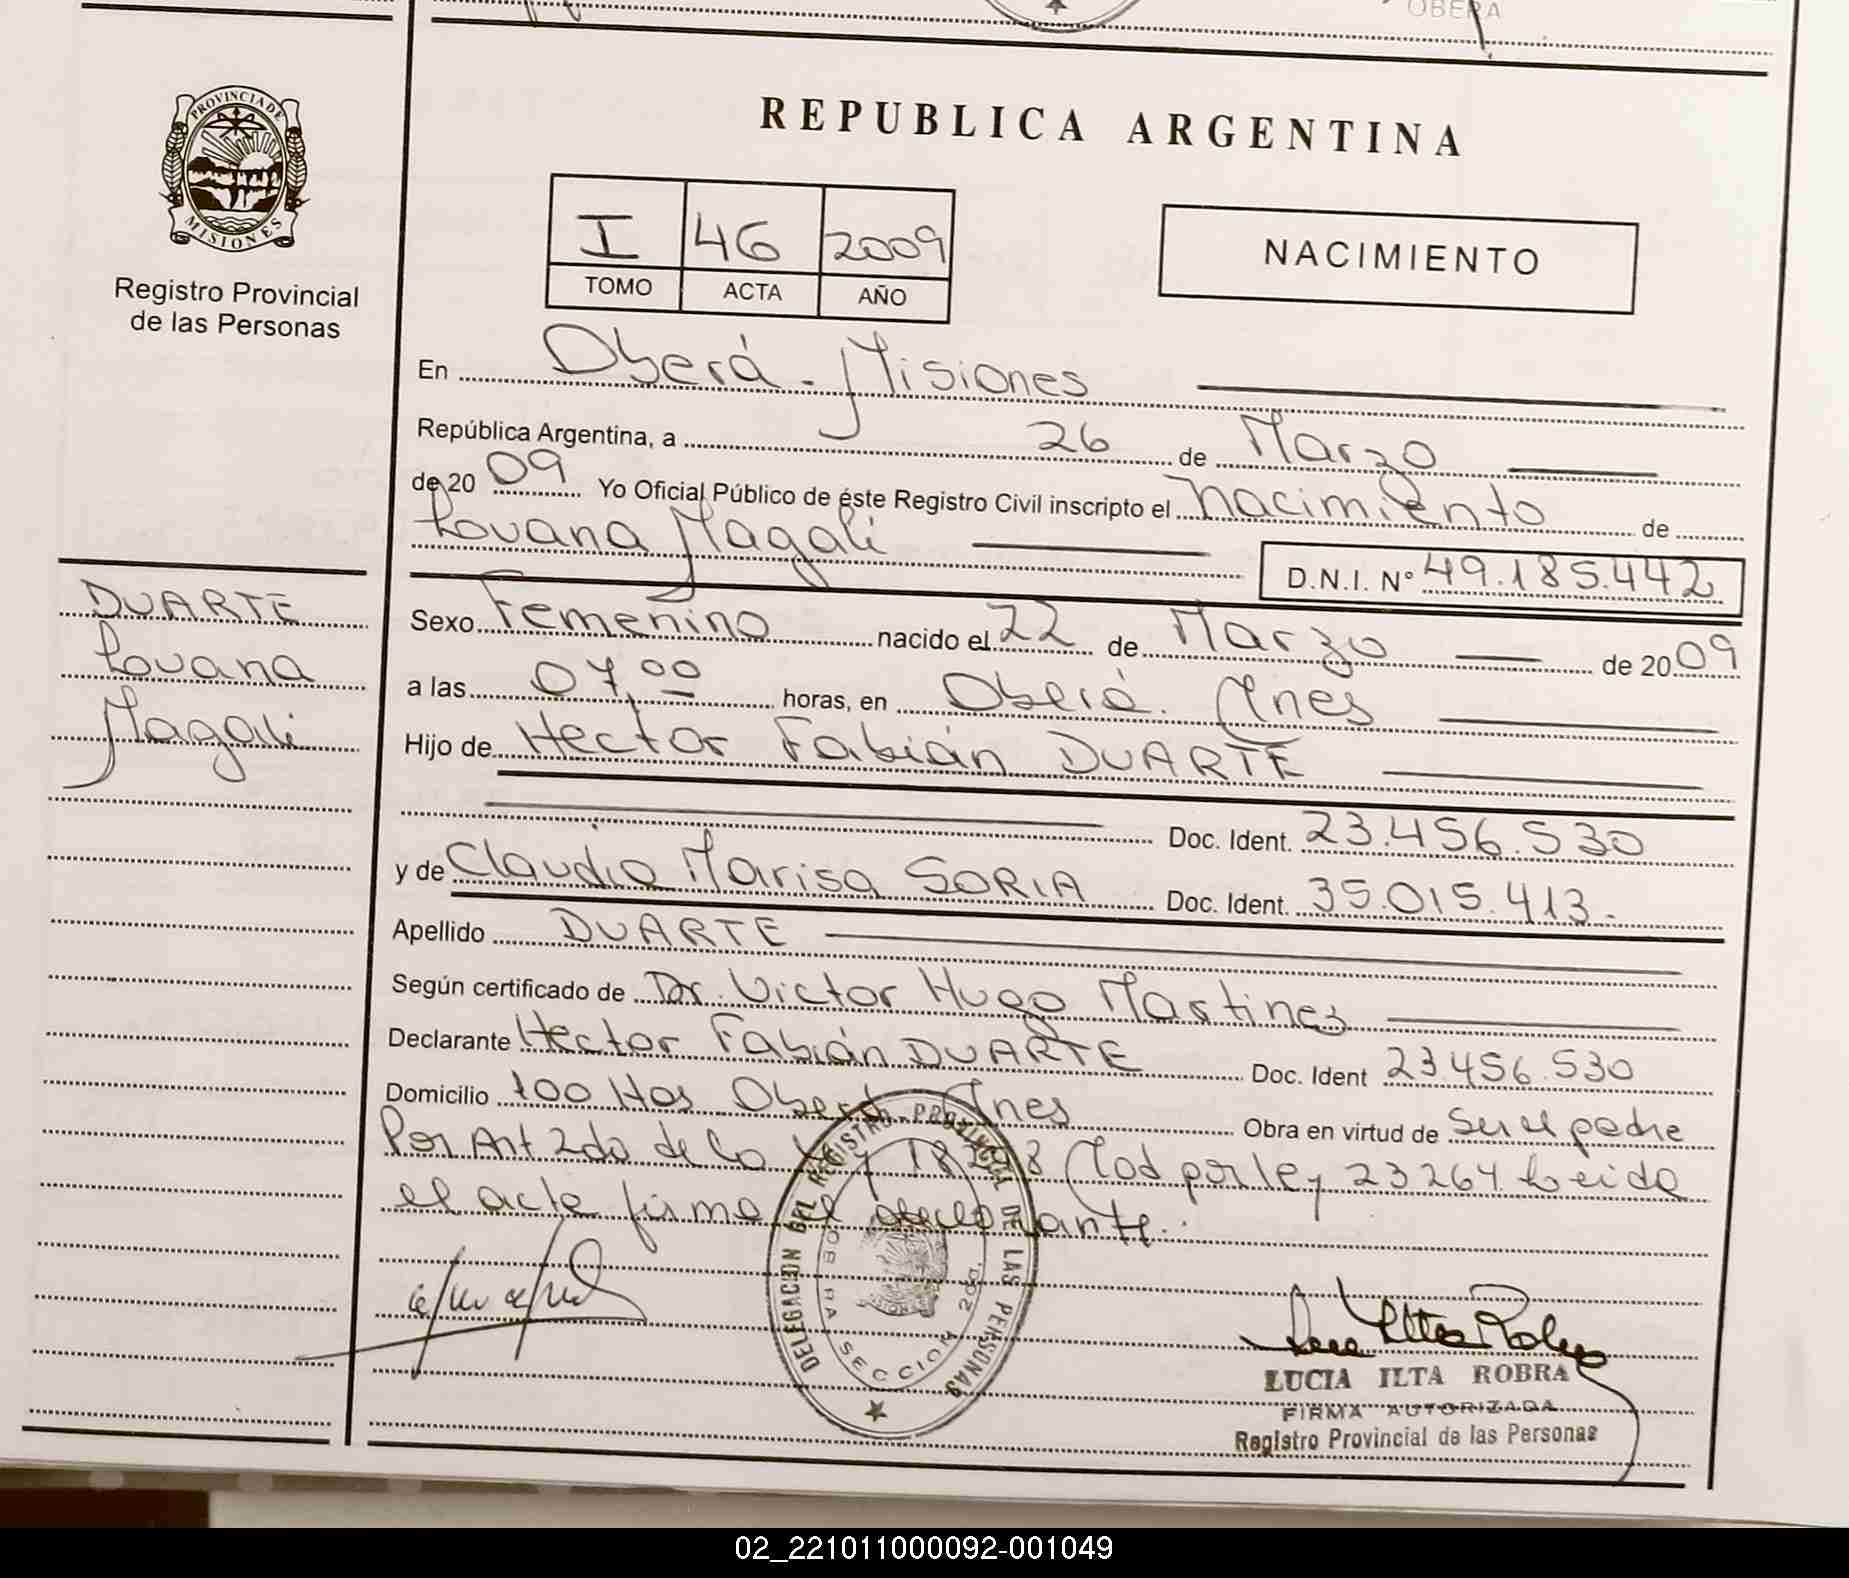 OBERA
PROVINCIA DE
MISIONES
Registro Provincial
de las Personas
REPUBLICA ARGENTINA
I 46 2009
TOMO ACTA AÑO
NACIMIENTO
En Oberá - Misiones
República Argentina, a 26 de Marzo
de 20 09 Yo Oficial Público de éste Registro Civil inscripto el nacimiento de
Louana Magali
D.N.I. N° 49.185.442
DUARTE
Louana
Magali
Sexo Femenino nacido el 22 de Marzo de 20 09
a las 07,00 horas, en Oberá. Mnes
Hijo de Hector Fabián DUARTE
Doc. Ident. 23.456.530
y de Claudia Marisa SORIA Doc. Ident. 35.015.413.
Apellido DUARTE
Según certificado de Dr. Victor Hugo Martines
Declarante Hector Fabián DUARTE Doc. Ident 23.456.530
Domicilio 100 Has Oberá Mnes Obra en virtud de ser el padre
Por Art 2do de la Ley Mod por ley 23264 Leida
el acta firma el declarante.
DELEGACION DEL REGISTRO PROVINCIAL DE LAS PERSONAS
SECCION 2da.
LUCIA ILTA ROBRA
FIRMA AUTORIZADA
Registro Provincial de las Personas
02_221011000092-001049